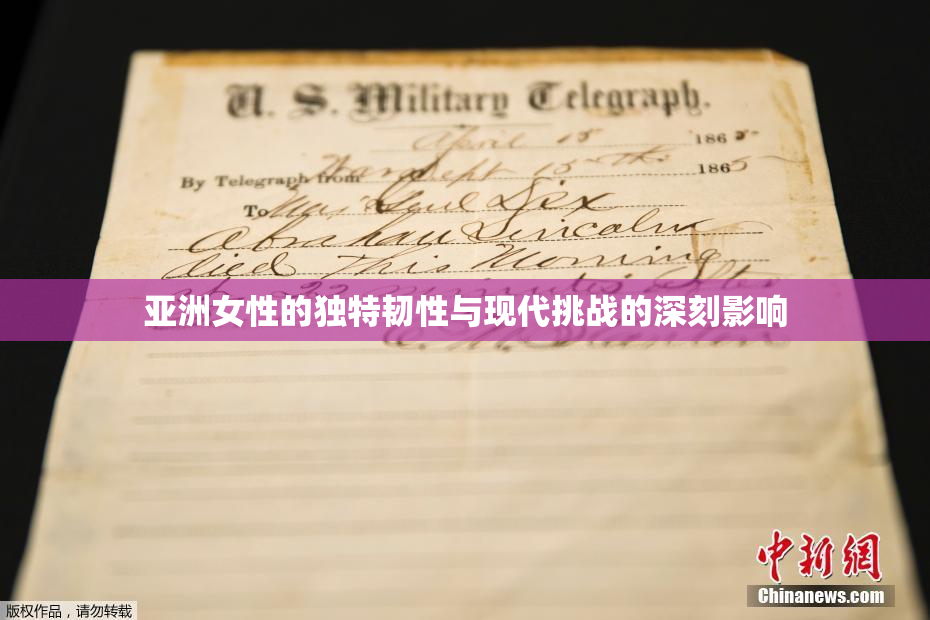 U. S. Military Telegraph.
April 15 1865
By Telegraph from War Dept 15th 1865
To Maj Genl Dix
Abraham Lincoln
died This Morning
at 22 minutes after
亚洲女性的独特韧性与现代挑战的深刻影响
E. M. Stanton
中新网
Chinanews.com
版权作品,请勿转载